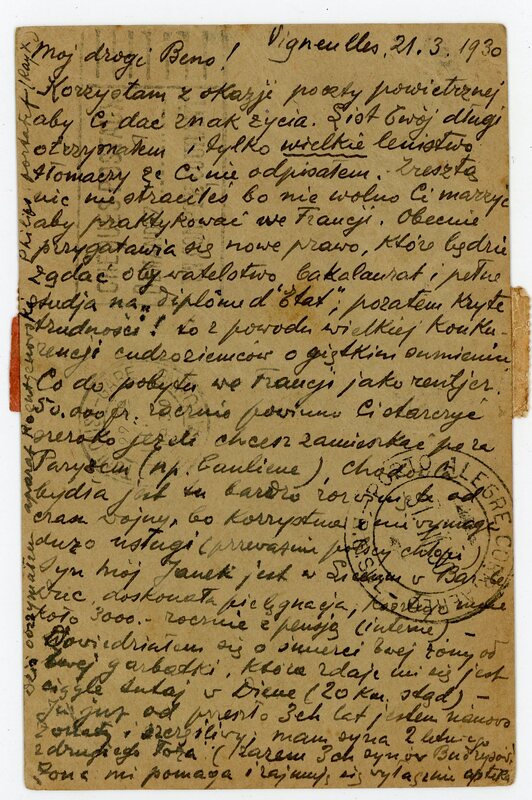 Vigneulles, 21.3.1930
Mój drogi Beno!
Korzystam z okazji poczty powietrznej
aby Ci dać znak życia. List twój długi
otrzymałem i tylko wielkie lenistwo
tłomaczy że Ci nie odpisałem. Zresztą
nic nie straciłeś bo nie wolno Ci marzyć
aby praktykować we Francji. Obecnie
przygotawia się nowe prawo, które będzie
żądać obywatelstwo, bakalaurat i pełne
studja na "diplôme d'Etat", pozatem
trudności! to z powodu wielkiej konku-
rencji cudzoziemców o giętkim sumieniu
Co do pobytu we Francji jako rentjer.
50.000 fr. rocznie powinno Ci starczyć
szeroko jeżeli chcesz zamieszkać poza
Paryżem (np. banlieue) chodowla
bydła jest tu bardzo rozwinięta od
czasu wojny, bo korzystna i nie wymaga
dużo usługi (przeważnie polscy chłopi
Syn mój Janek jest w Liceum v Bar-le
Duc, doskonała pielęgnacja, kosztuje mnie
koło 3000.- rocznie z pensją (interne)
Dowiedziałem się o śmierci twej żony od
twej garbatki, która zdaje mi się jest
ciągle tutaj w Dieue (20 km. stąd) -
Ja już od przeszło 3ch lat jestem nanowo
żonaty i szczęśliwy, mam syna 2 letniego
z drugiego łoża (razem 3ch synów Budrysów)
Żona mi pomaga i zajmuje się wyłącznie apteką
otrzymałem aparat Philips
PORTO ALEGRE
BRASIL